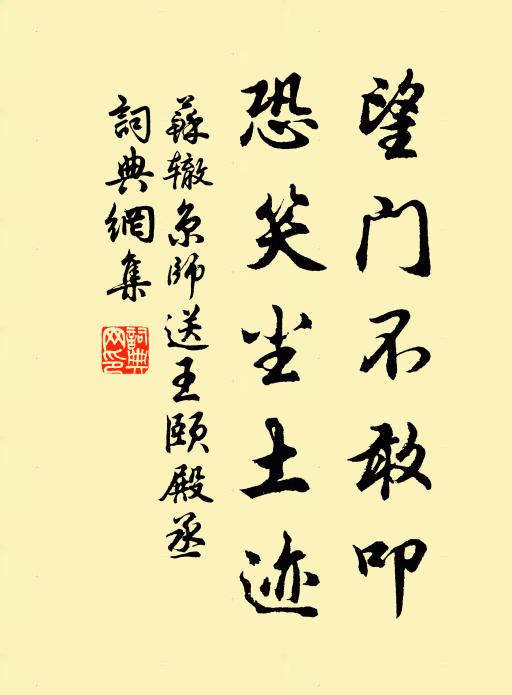 望门不敢叩
恐笑尘土迹
蘇辙京師送王颐殿丞
詞典網集
詞典
网印